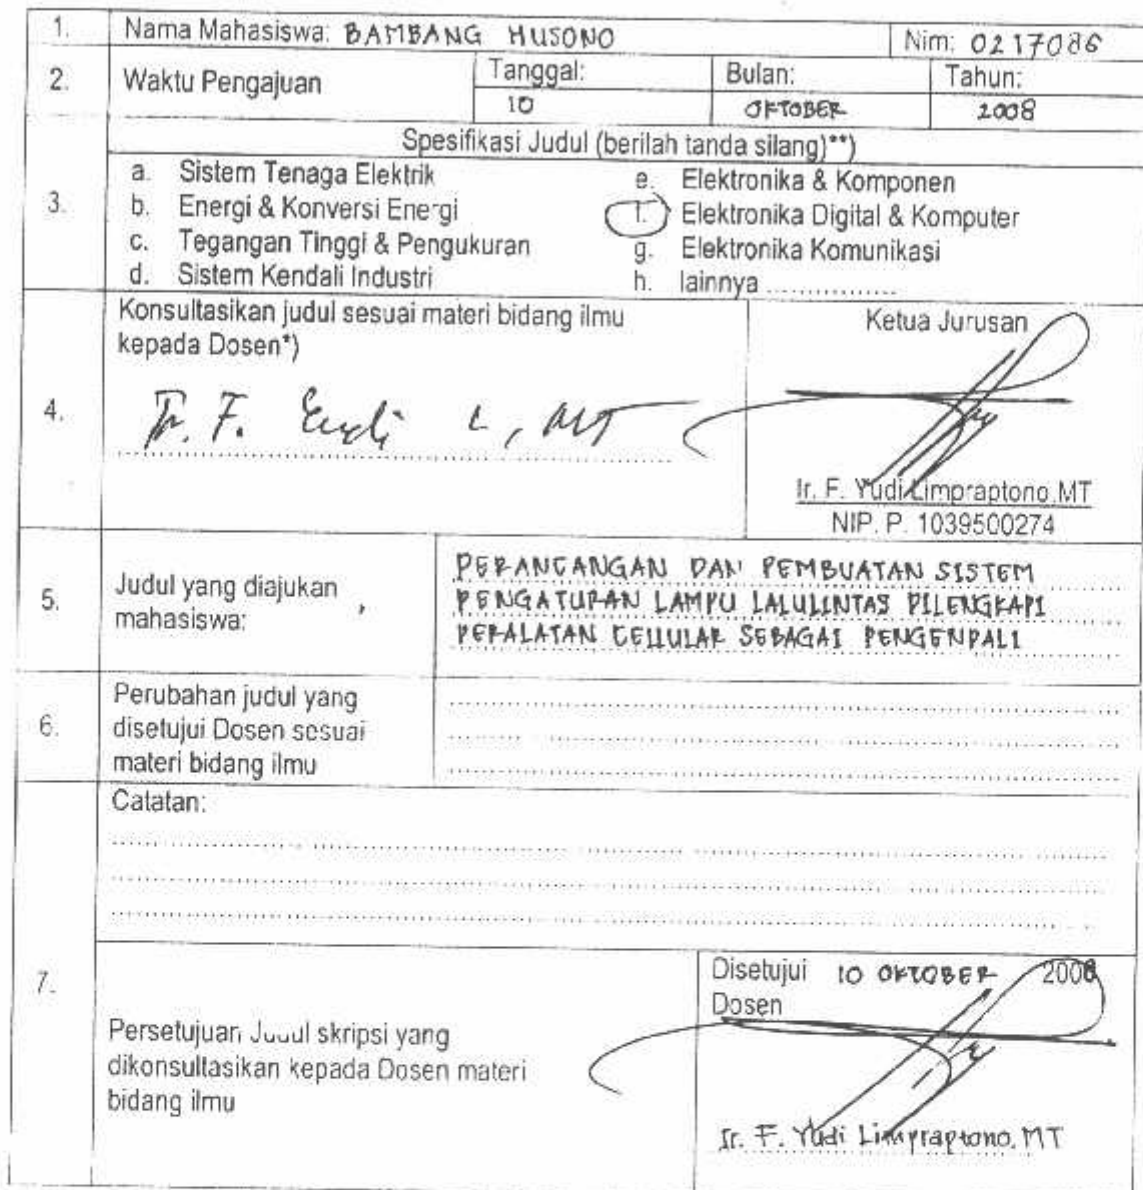 1. Nama Mahasiswa: BAMBANG HUSONO Nim: 0217086
2. Waktu Pengajuan Tanggal: Bulan: Tahun:
10 OKTOBER 2008
Spesifikasi Judul (berilah tanda silang)**)
3.
a. Sistem Tenaga Elektrik
b. Energi & Konversi Energi
c. Tegangan Tinggi & Pengukuran
d. Sistem Kendali Industri
e. Elektronika & Komponen
f. Elektronika Digital & Komputer
g. Elektronika Komunikasi
h. lainnya ................
4.
Konsultasikan judul sesuai materi bidang ilmu
kepada Dosen*)
Ir. F. Yudi L, MT
Ketua Jurusan
Ir. F. Yudi Limpraptono,MT
NIP. P. 1039500274
5.
Judul yang diajukan
mahasiswa:
PERANCANGAN DAN PEMBUATAN SISTEM
PENGATURAN LAMPU LALULINTAS DILENGKAPI
PERALATAN CELLULAR SEBAGAI PENGENDALI
6.
Perubahan judul yang
disetujui Dosen sesuai
materi bidang ilmu
Catatan:
7.
Persetujuan Judul skripsi yang
dikonsultasikan kepada Dosen materi
bidang ilmu
Disetujui 10 OKTOBER 2008
Dosen
Ir. F. Yudi Limpraptono, MT